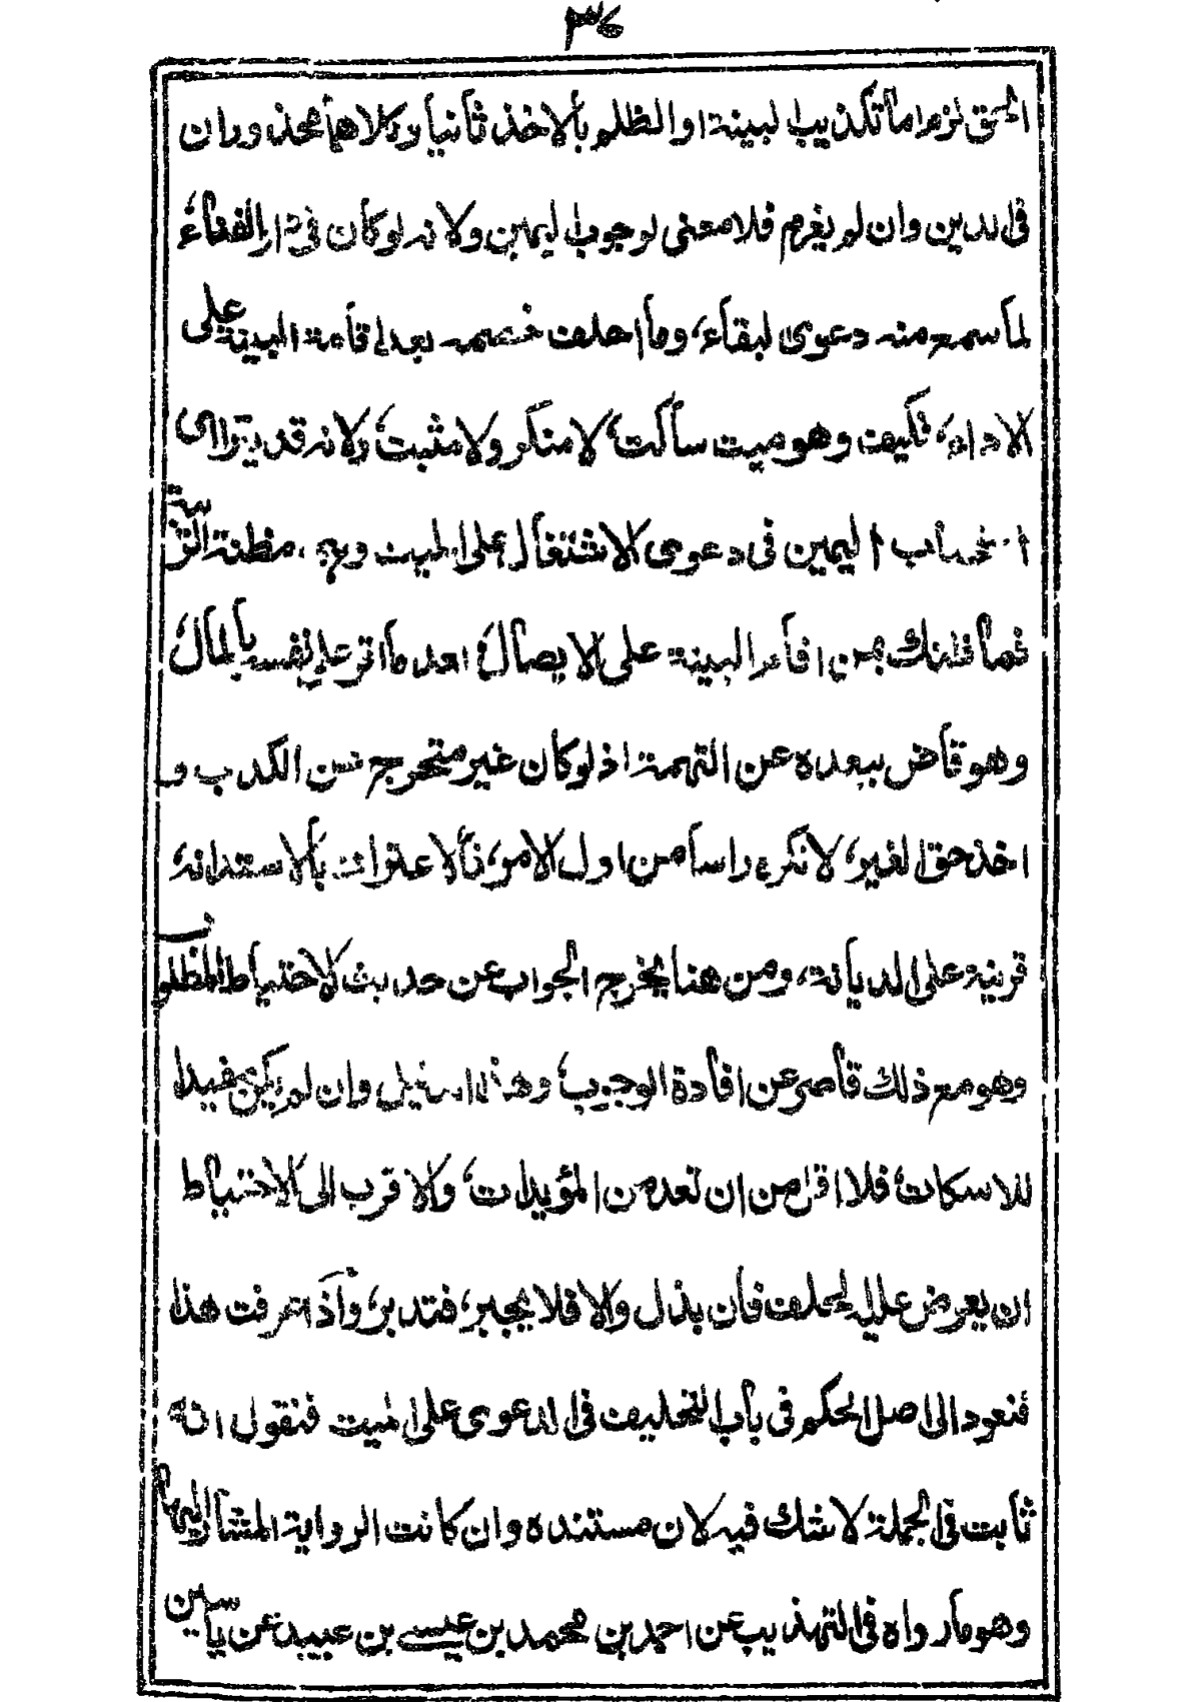 ٣٦
الحق لزم اما تكذيب البينة او الظلم بالاخذ ثانيا وكلاهما محذوران
فى الدين وان لم يغرم فلا معنى لوجوب اليمين ولانه لو كان فى دار الفناء
لما سمع منه دعوى البقاء، وما احلف خصمه بعد اقامة البينة على
الاداء، فكيف وهو ميت ساكت، لا منكر ولا مثبت، ولانه قد يتراأى
اليمين فى دعوى الاشتغال على الميت وهو مظنة
فما ظنك بمن اقام البينة على الايصال، بعد ما اقر على نفسه بالمال،
وهو قاض ببعده عن التهمة اذ لو كان غير متحرج عن الكذب و
اخذ حق الغير، لانكره راسا من اول الامر، فالاعتراف بالاستدانة،
قرينة على الديانة، ومن هنا يخرج الجواب عن حديث الاحتياط المظلوب
وهو مع ذلك قاصر عن افادة الوجوب، وهذا وان لم يكن مفيدا
للاسكات، فلا اقل من ان تعد من المؤيدات، والاقرب الى الاحتياط
ان يعرض عليه الحلف فان بذل والا فلا يجبر، فتدبر، واذا عرفت هذا
فنعود الى اصل الحكم فى باب التحليف فى الدعوى على الميت فنقول انه
ثابت فى الجملة لا شك فيه لان مستنده وان كانت الرواية المشار اليها
وهو ما رواه فى التهذيب عن احمد بن محمد بن عيسى بن عبيد عن ياسين